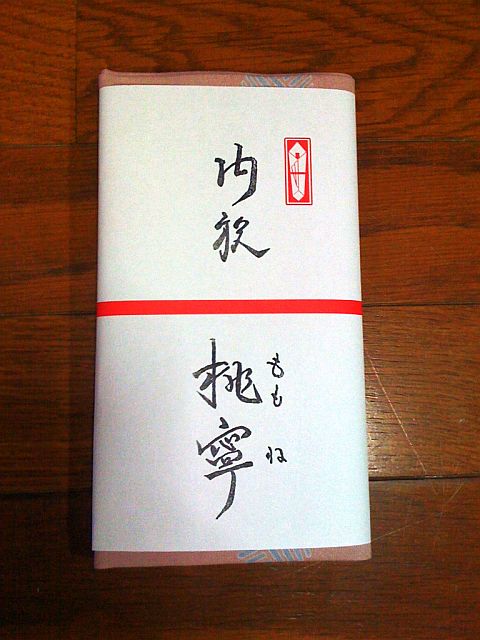 内祝
桃寧
もも ね